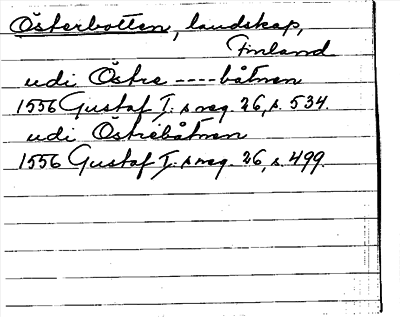 Österbotten, landskap,
Finland
udi Östre ---- båtnen
1556 Gustaf I:s reg. 26, s. 534.
udi Östrebåtnen
1556 Gustaf I:s reg. 26, s. 499.